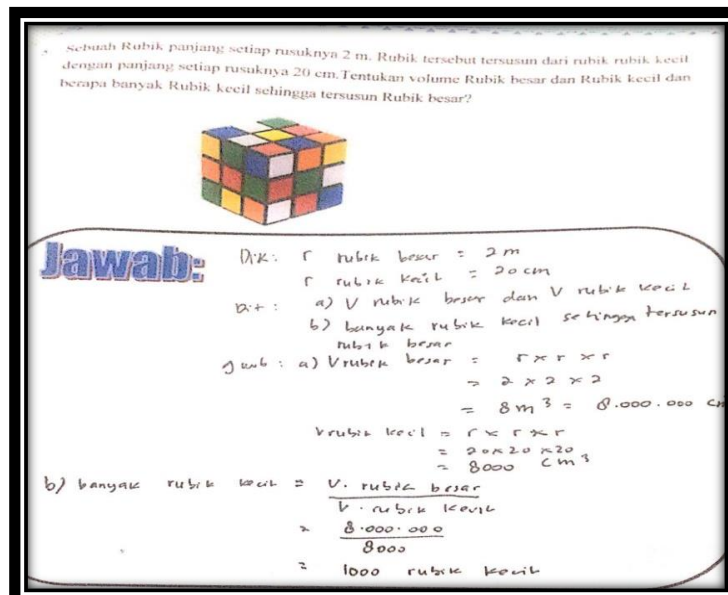 Sebuah Rubik panjang setiap rusuknya 2 m. Rubik tersebut tersusun dari rubik rubik kecil
dengan panjang setiap rusuknya 20 cm.Tentukan volume Rubik besar dan Rubik kecil dan
berapa banyak Rubik kecil sehingga tersusun Rubik besar?
Jawab:
Dik: r rubik besar = 2 m
r rubik kecil = 20 cm
Dit: a) V rubik besar dan V rubik kecil
b) banyak rubik kecil sehingga tersusun
rubik besar
Jwb: a) V rubik besar = r x r x r
= 2 x 2 x 2
= 8 m³ = 8.000.000 cm
V rubik kecil = r x r x r
= 20 x 20 x 20
= 8000 cm³
b) banyak rubik kecil = V. rubik besar
V. rubik kecil
= 8.000.000
8000
= 1000 rubik kecil